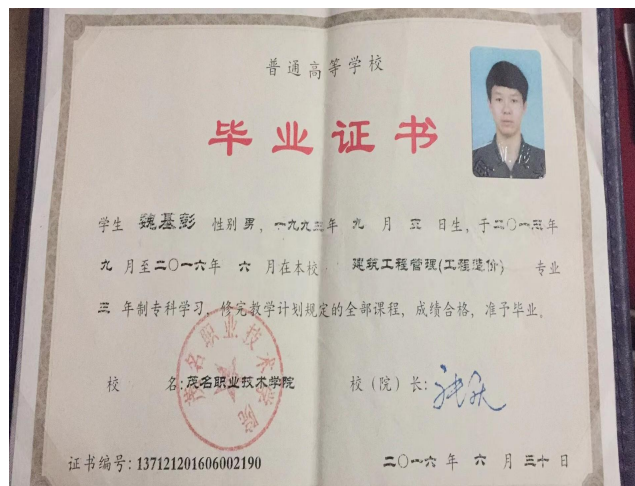 普通高等学校
毕业证书
学生 魏基彭 性别 男，一九九三年 九 月 五 日生，于二〇一三年
九 月至二〇一六年 六 月在本校 建筑工程管理(工程造价) 专业
三 年制专科学习，修完教学计划规定的全部课程，成绩合格，准予毕业。
校 名：茂名职业技术学院 校（院）长：
茂名职业技术学院
证书编号：137121201606002190 二〇一六 年 六 月 三十 日